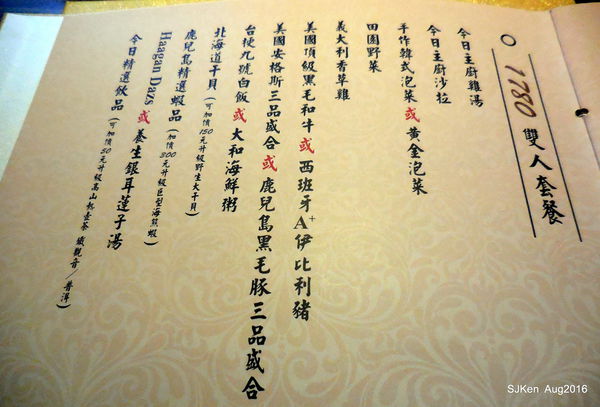 1780 雙人套餐
今日主廚雞湯
今日主廚沙拉
手作韓式泡菜或黃金泡菜
田園野菜
義大利香草雞
美國頂級黑毛和牛或西班牙A+伊比利豬
美國安格斯三品盛合或鹿兒島黑毛豚三品盛合
台梗九號白飯或大和海鮮粥
北海道干貝(可加價150元升級野生大干貝)
鹿兒島精選蝦品(加價300元升級巨型海熊蝦)
Haagan Dazs或養生銀耳蓮子湯
今日精選飲品(可加價50元升級高山枇杷茶 鐵觀音/普洱)
SJKen Aug2016